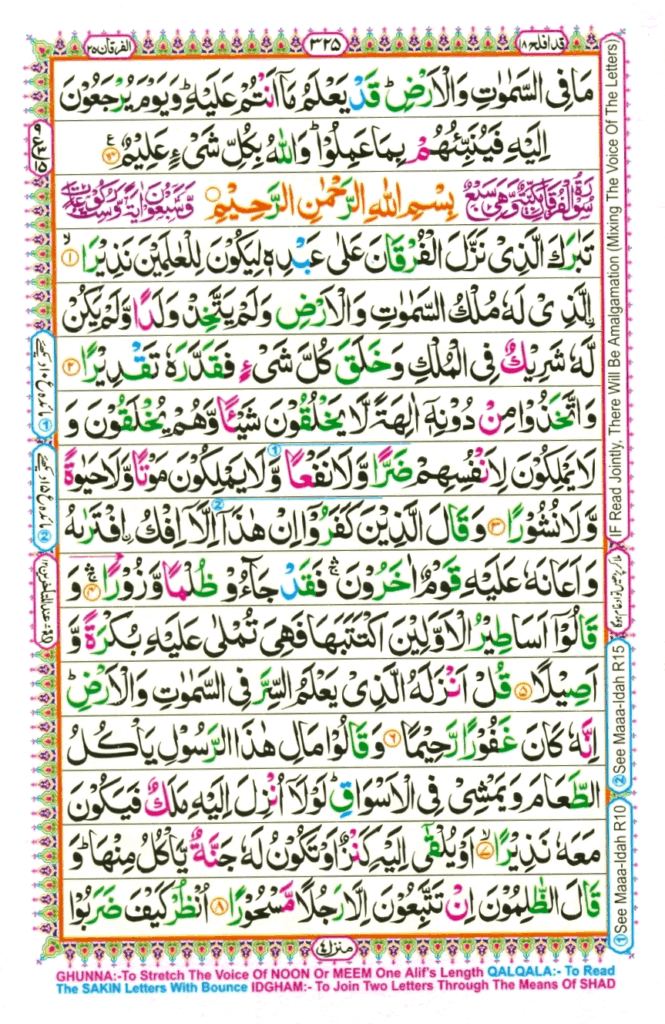 قد افلح ۱۸
۳۲۵
الفرقان ۲۵
مَا فِى السَّمٰوٰتِ وَالْاَرْضِ ؕ قَدْ يَعْلَمُ مَاۤ اَنْتُمْ عَلَيْهِ ؕ وَيَوْمَ يُرْجَعُوْنَ
اِلَيْهِ فَيُنَبِّئُهُمْ بِمَا عَمِلُوْا ؕ وَاللّٰهُ بِكُلِّ شَىْءٍ عَلِيْمٌ ۶۴
سُوْرَةُ الْفُرْقَانِ مَكِّيَّةٌ وَّهِىَ سَبْعٌ بِسْمِ اللّٰهِ الرَّحْمٰنِ الرَّحِيْمِ وَّسَبْعُوْنَ اٰيَةً وَّسِتُّ رُكُوْعَاتٍ
تَبٰرَكَ الَّذِىْ نَزَّلَ الْفُرْقَانَ عَلٰى عَبْدِهٖ لِيَكُوْنَ لِلْعٰلَمِيْنَ نَذِيْرًا ۙ ۱
اۨلَّذِىْ لَهٗ مُلْكُ السَّمٰوٰتِ وَالْاَرْضِ وَلَمْ يَتَّخِذْ وَلَدًا وَّلَمْ يَكُنْ
لَّهٗ شَرِيْكٌ فِى الْمُلْكِ وَخَلَقَ كُلَّ شَىْءٍ فَقَدَّرَهٗ تَقْدِيْرًا ۲
وَاتَّخَذُوْا مِنْ دُوْنِهٖۤ اٰلِهَةً لَّا يَخْلُقُوْنَ شَيْـًٔا وَّهُمْ يُخْلَقُوْنَ وَ
لَا يَمْلِكُوْنَ لِاَنْفُسِهِمْ ضَرًّا وَّلَا نَفْعًا وَّلَا يَمْلِكُوْنَ مَوْتًا وَّلَا حَيٰوةً
وَّلَا نُشُوْرًا ۳ وَقَالَ الَّذِيْنَ كَفَرُوْۤا اِنْ هٰذَاۤ اِلَّاۤ اِفْكُ اۨفْتَرٰىهُ
وَاَعَانَهٗ عَلَيْهِ قَوْمٌ اٰخَرُوْنَ ۛۚ فَقَدْ جَآءُوْ ظُلْمًا وَّزُوْرًا ۛۚ ۴ وَ
قَالُوْۤا اَسَاطِيْرُ الْاَوَّلِيْنَ اكْتَتَبَهَا فَهِىَ تُمْلٰى عَلَيْهِ بُكْرَةً وَّ
اَصِيْلًا ۵ قُلْ اَنْزَلَهُ الَّذِىْ يَعْلَمُ السِّرَّ فِى السَّمٰوٰتِ وَالْاَرْضِ ؕ
اِنَّهٗ كَانَ غَفُوْرًا رَّحِيْمًا ۶ وَقَالُوْا مَالِ هٰذَا الرَّسُوْلِ يَاْكُلُ
الطَّعَامَ وَيَمْشِىْ فِى الْاَسْوَاقِ ؕ لَوْلَاۤ اُنْزِلَ اِلَيْهِ مَلَكٌ فَيَكُوْنَ
مَعَهٗ نَذِيْرًا ۙ ۷ اَوْ يُلْقٰۤى اِلَيْهِ كَنْزٌ اَوْ تَكُوْنُ لَهٗ جَنَّةٌ يَّاْكُلُ مِنْهَا ؕ وَ
قَالَ الظّٰلِمُوْنَ اِنْ تَتَّبِعُوْنَ اِلَّا رَجُلًا مَّسْحُوْرًا ۸ اُنْظُرْ كَيْفَ ضَرَبُوْا
منزل ۴
IF Read Jointly, There Will Be Amalgamation (Mixing The Voice Of The Letters)
② See Maaa-Idah R15
① See Maaa-Idah R10
GHUNNA:-To Stretch The Voice Of NOON Or MEEM One Alif's Length QALQALA:- To Read
The SAKIN Letters With Bounce IDGHAM:- To Join Two Letters Through The Means Of SHAD